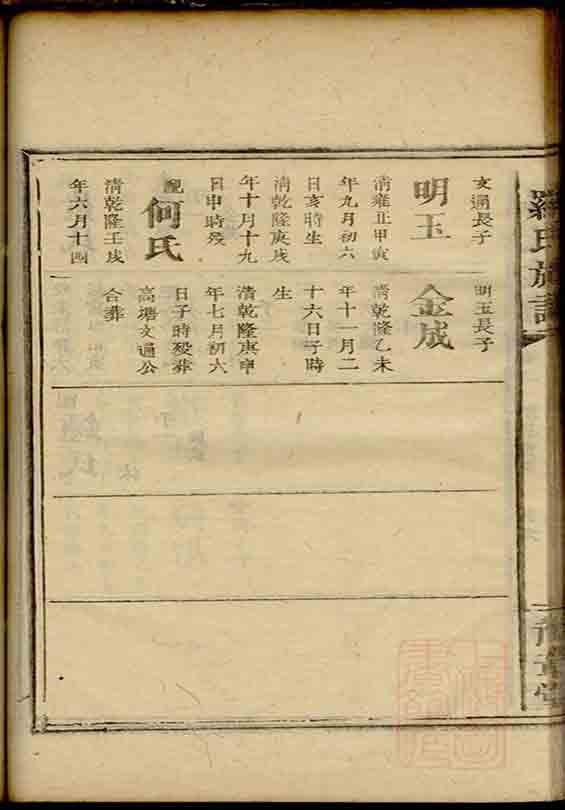 羅氏族譜
文過長子
明玉
清雍正甲寅
年九月初六
日亥時生
清乾隆庚戌
年十月十九
日申時殁
配
何氏
清乾隆壬戌
年六月十四
明玉長子
金成
清乾隆乙未
年十一月二
十六日子時
生
清乾隆庚申
年七月初六
日子時殁葬
高塘文過公
合葬
豫章堂